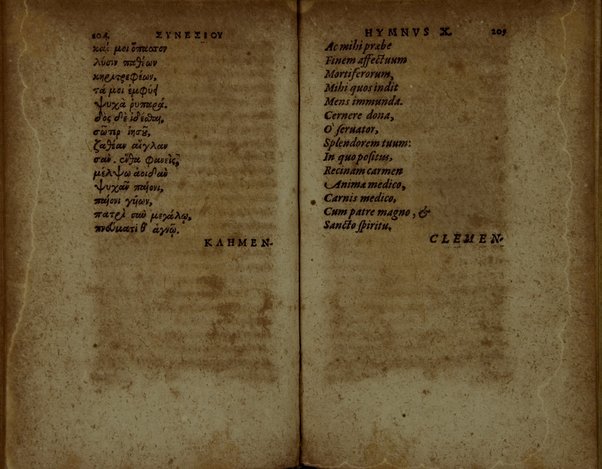 204 ΣΥΝΕΣΙΟΥ
καί μοι ὄπασον
λύσιν παθέων
κηριτρεφέων,
τά μοι ἐμφύει
ψυχὰ ῥυπαρά.
δὸς δὲ ἰδέσθαι,
σῶτερ ἰησοῦ,
ζαθέαν αἴγλαν
σάν. ἔνθα φανεὶς,
μέλψω ἀοιδὰν
ψυχᾶν παίονι,
παίονι γυίων,
πατρὶ σὺν μεγάλῳ,
πνεύματί θ' ἁγίῳ.
ΚΛΗΜΕΝ-
HYMNVS X. 205
Ac mihi præbe
Finem affectuum
Mortiferorum,
Mihi quos indit
Mens immunda.
Cernere dona,
O' seruator,
Splendorem tuum:
In quo positus,
Recinam carmen
Animæ medico,
Carnis medico,
Cum patre magno, &
Sancto spiritu.
CLEMEN-